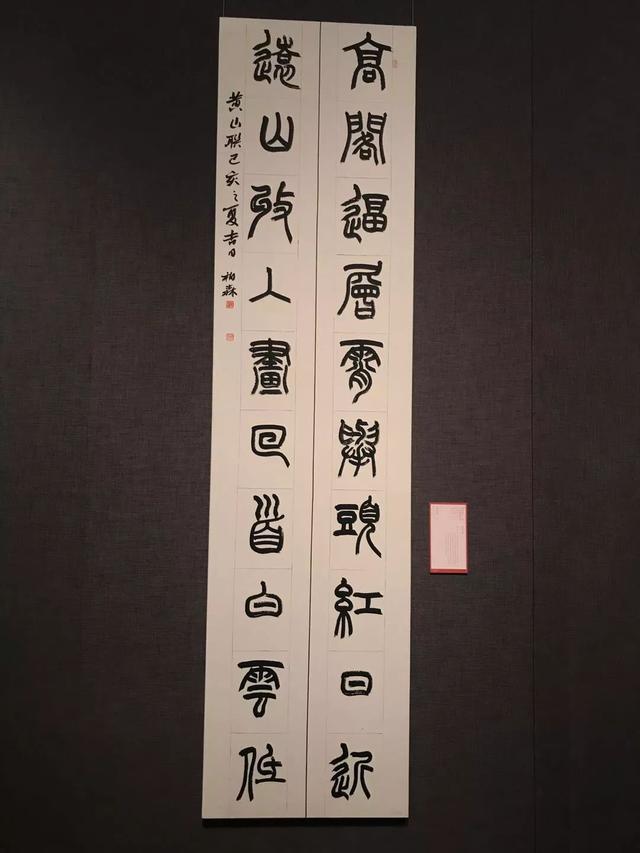 高閣逼層霄舉頭紅日近
遠山收入畫回首白雲低
黄山聯己亥之夏吉日 柏森